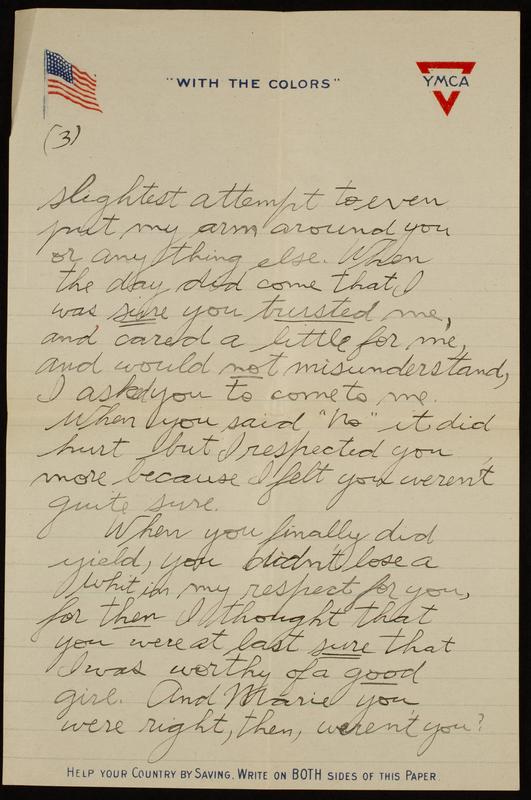 "WITH THE COLORS"
YMCA
(3)
slightest attempt to even
put my arm around you
or anything else. When
the day did come that I
was sure you trusted me,
and cared a little for me,
and would not misunderstand,
I asked you to come to me.
When you said "No" it did
hurt but I respected you
more because I felt you weren't
quite sure.
When you finally did
yield, you didn't lose a
whit in my respect for you,
for then I thought that
you were at last sure that
I was worthy of a good
girl. And Marie you
were right, then, weren't you?
HELP YOUR COUNTRY BY SAVING. WRITE ON BOTH SIDES OF THIS PAPER.